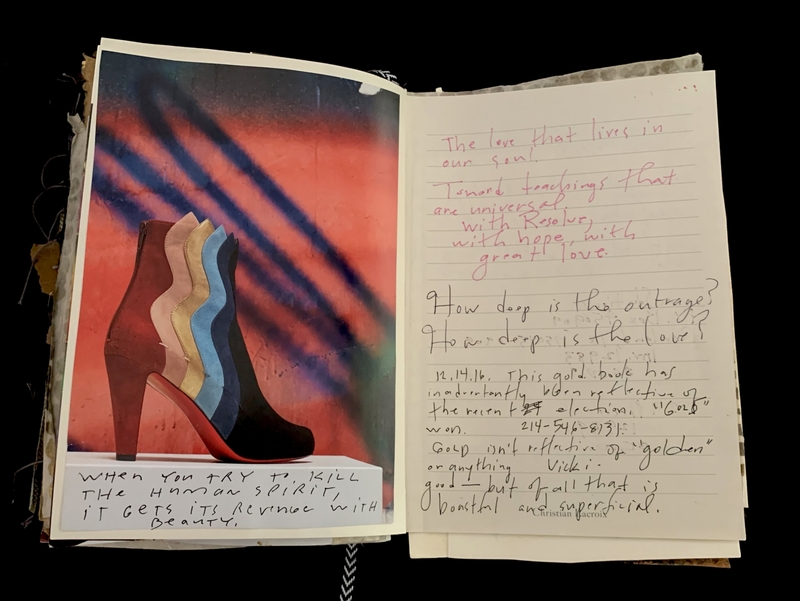 WHEN YOU TRY TO KILL
THE HUMAN SPIRIT,
IT GETS ITS REVENGE WITH
BEAUTY.
The love that lives in
our soul.
Toward teachings that
are universal,
with Resolve,
with hope, with
great love.
How deep is the outrage?
How deep is the love?
12.14.16. This gold book has
inadvertently been reflective of
the recent election. "GOLD"
won. 214-546-8131.
GOLD isn't reflective of "golden"
or anything Vicki.
good — but of all that is
boastful and superficial.
Christian Lacroix